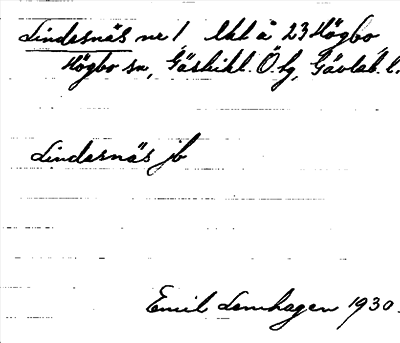 Lindesnäs nr 1, lht å 23 Högbo,
Högbo sn, Gästrikl. Ö. tg, Gävleb. l.
Lindesnäs jb
Emil Lennhagen 1930.